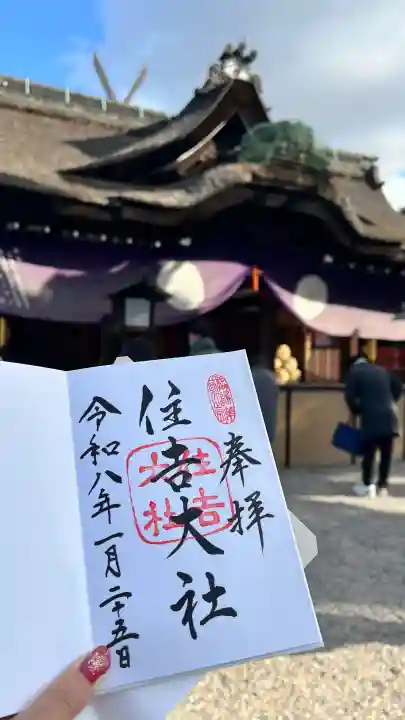 奉拝
住吉大社
住吉大社
令和八年一月二十五日